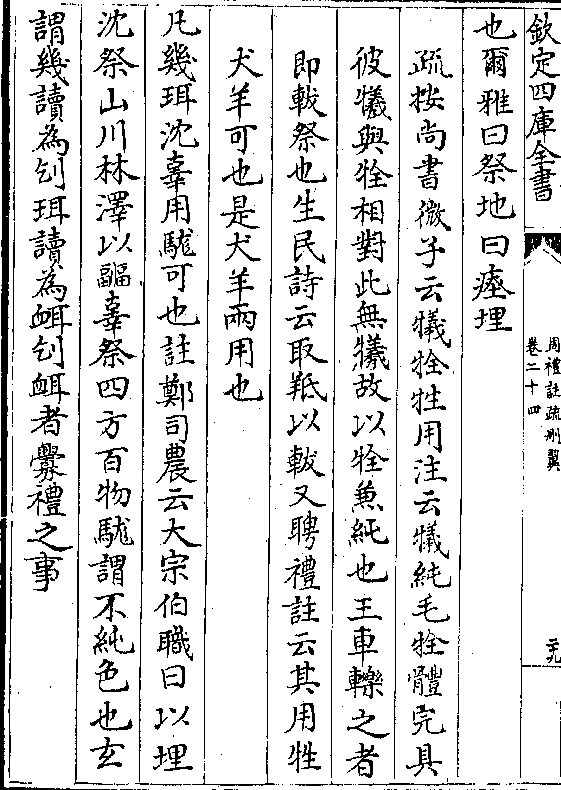 欽定四庫全書
周禮註疏刪翼
卷二十四
二九
也爾雅曰祭地曰瘞埋
疏按尚書微子云犧牷牲用注云犧純毛牷體完具
彼犧與牷相對此無犧故以牷兼純也王車轢之者
即軷祭也生民詩云取羝以軷又聘禮註云其用牲
犬羊可也是犬羊兩用也
凡幾珥沈辜用駹可也註鄭司農云大宗伯職曰以埋
沈祭山川林澤以疈辜祭四方百物駹謂不純色也玄
謂幾讀為刉珥讀為衈刉衈者釁禮之事